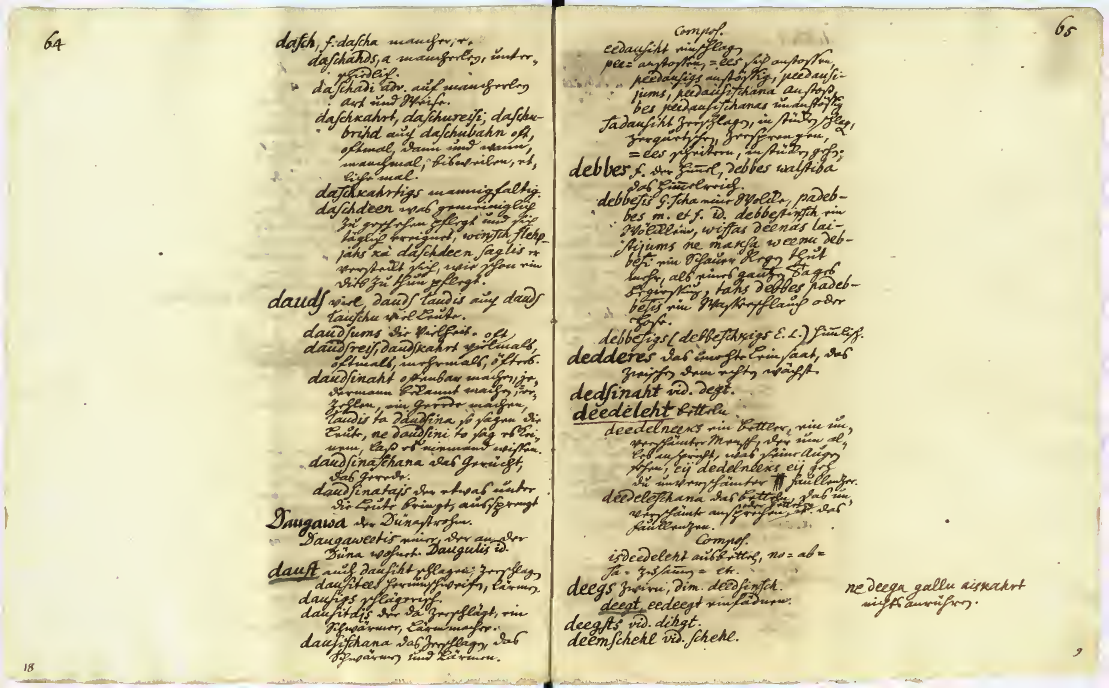 64
daſch, f. daſcha mancher, e.
daſchahds, a mancherley, unter-
ſchiedlich.
daſchadi adv. auf mancherley
Art und Weiſe.
daſchkahrt, daſchureiſi, daſchu-
brihd auch daſchubahn oft,
oftmal, dann und wann,
manchmal, bisweilen, et-
liche mal.
daſchkahrtigs mannigfaltig.
daſchdeen was gemeiniglich
zu geſchehen pflegt und ſich
täglich ereignet, winſch ſlehp-
jahs kà daſchdeen ſaglis er
verſteckt ſich, wie ſchon ein
Dieb zu thun pflegt.
daudſ viel, daudſ laudis auch daudſ
lauſchu viel Leute.
daudſums die Vielheit. oft,
daudſreiſ, daudſkahrt vielmals,
oftmals, mehrmals, öfters.
daudſinaht offenbar machen, je-
dermann bekannt machen, er-
zehlen, ein Gerede machen,
laudis to daudſina, ſo ſagen die
Leute, ne daudſini to ſag es kei-
nem, laß es niemand wiſſen.
daudſinaſchana das Gerücht,
das Gerede.
daudſinatajs der etwas unter
die Leute bringt, ausſprengt
Daugawa der Dünaſtrohm.
Daugaweetis einer, der an der
Düna wohnet. Daugulis id.
dauſt auch dauſiht ſchlagen, zerſchlagen
dauſitees herumſchweifen, lärmen
dauſigs ſchlägeriſch.
dauſitajs der da zerſchlägt, ein
Schwärmer, Lärmmacher.
dauſiſchana das Zerſchlagen, das
Schwärmen und Lärmen.
18
65
Compoſ.
eedauſiht einſchlagen
pee= anſtoſſen, =ees ſich anſtoſſen,
peedauſigs anſtößig, peedauſi-
jums, peedauſiſchana Anſtoß,
bes peedauſiſchanas unanſtößig
ſadauſiht zerſchlagen, in ſtücken ſchlagen,
zerquetſchen, zerſprengen,
=ees ſcheitern, in ſtücken gehen.
debbes f. der Himmel, debbes walſtiba
das Himmelreich.
debbeſis G. ſcha eine Wolke, padeb-
bes m. et f. id. debbeſtinſch ein
Wölklein, wiſſas deenas lai-
ſtijums ne makſa weenu deb-
beſi ein Schauer Regen thut
mehr, als eines ganzen Tages
Begieſſung, tahs debbes padeb-
beſis ein Waſſerſchlauch oder
Hoſe.
debbeſigs (debbeſchkigs E. L.) himmliſch.
dedderes das Leinſaat, das
zwiſchen dem rechten wächſt
dedſinaht vid. degt.
deedeleht betteln
deedelneeks ein Bettler, ein un-
verſchämter Menſch, der um al-
les anſpricht, was ſeine Augen
ſehen, eij dedelneeks eij geh
du unverſchämter Faullenzer.
deedeleſchana das Betteln, das un-
verſchämt anſprechen, it. das
Faullenzen.
Compoſ.
isdeedeleht ausbetteln, no= ab=
ſa= zuſamm= etc.
deegs Zwirn, dim. deedſinſch.
deegt, eedeegt einfädnen.
deegſts vid. dihgt.
deemſchehl vid. ſchehl.
ne deega gallu aiskahrt
nichts anrühren.
9